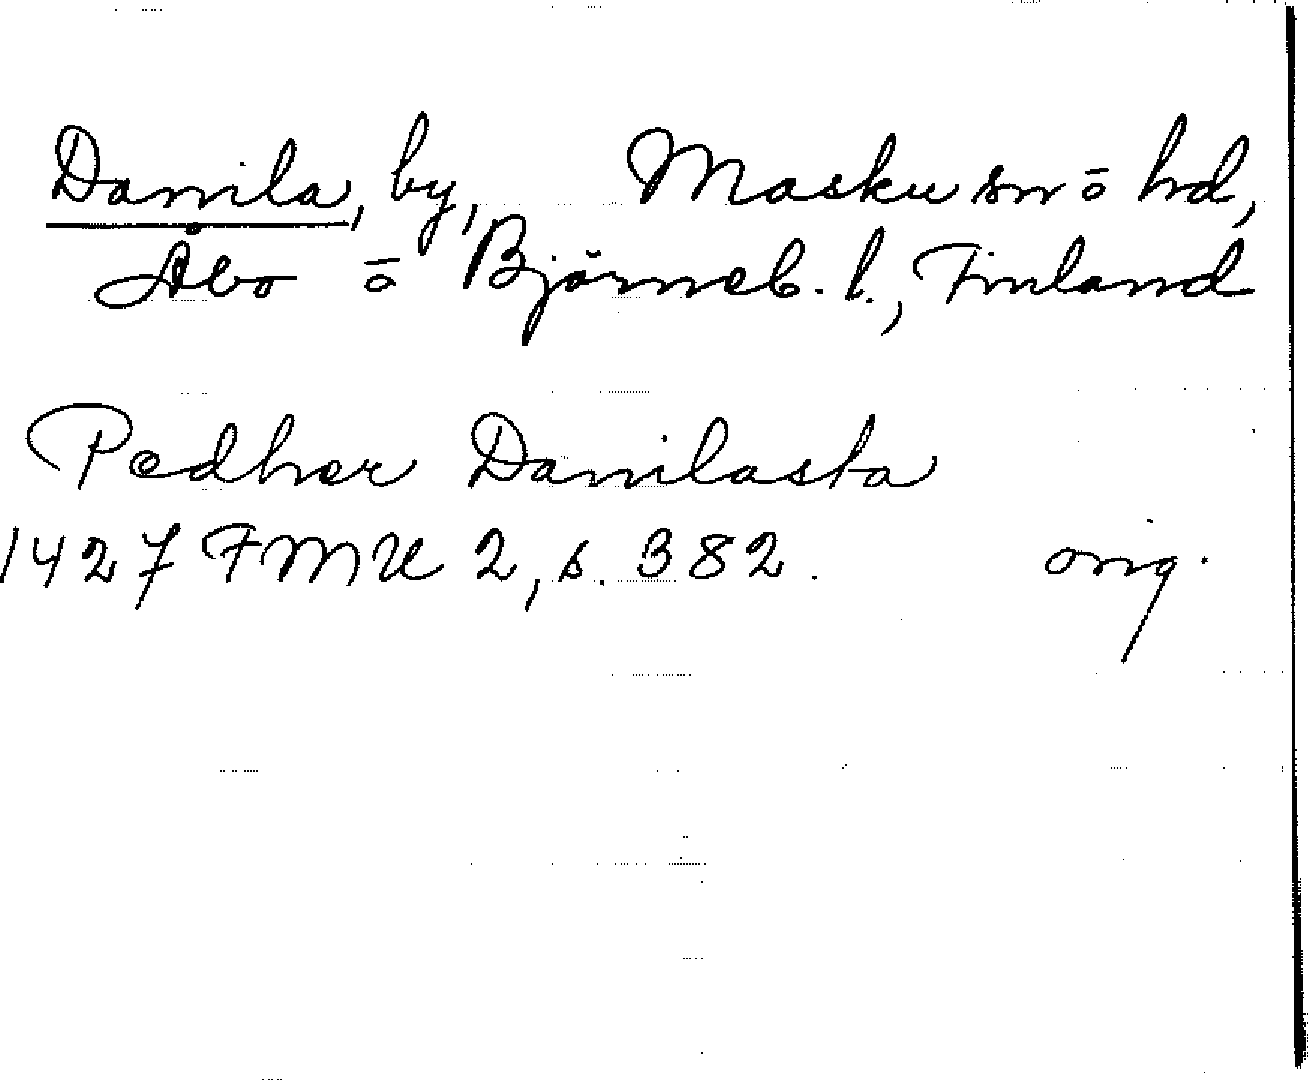 Danila, by, Masku sn ō hd,
Åbo ō Björneb. l., Finland
Pedher Danilasta
1427 FMU 2, s. 382. orig.